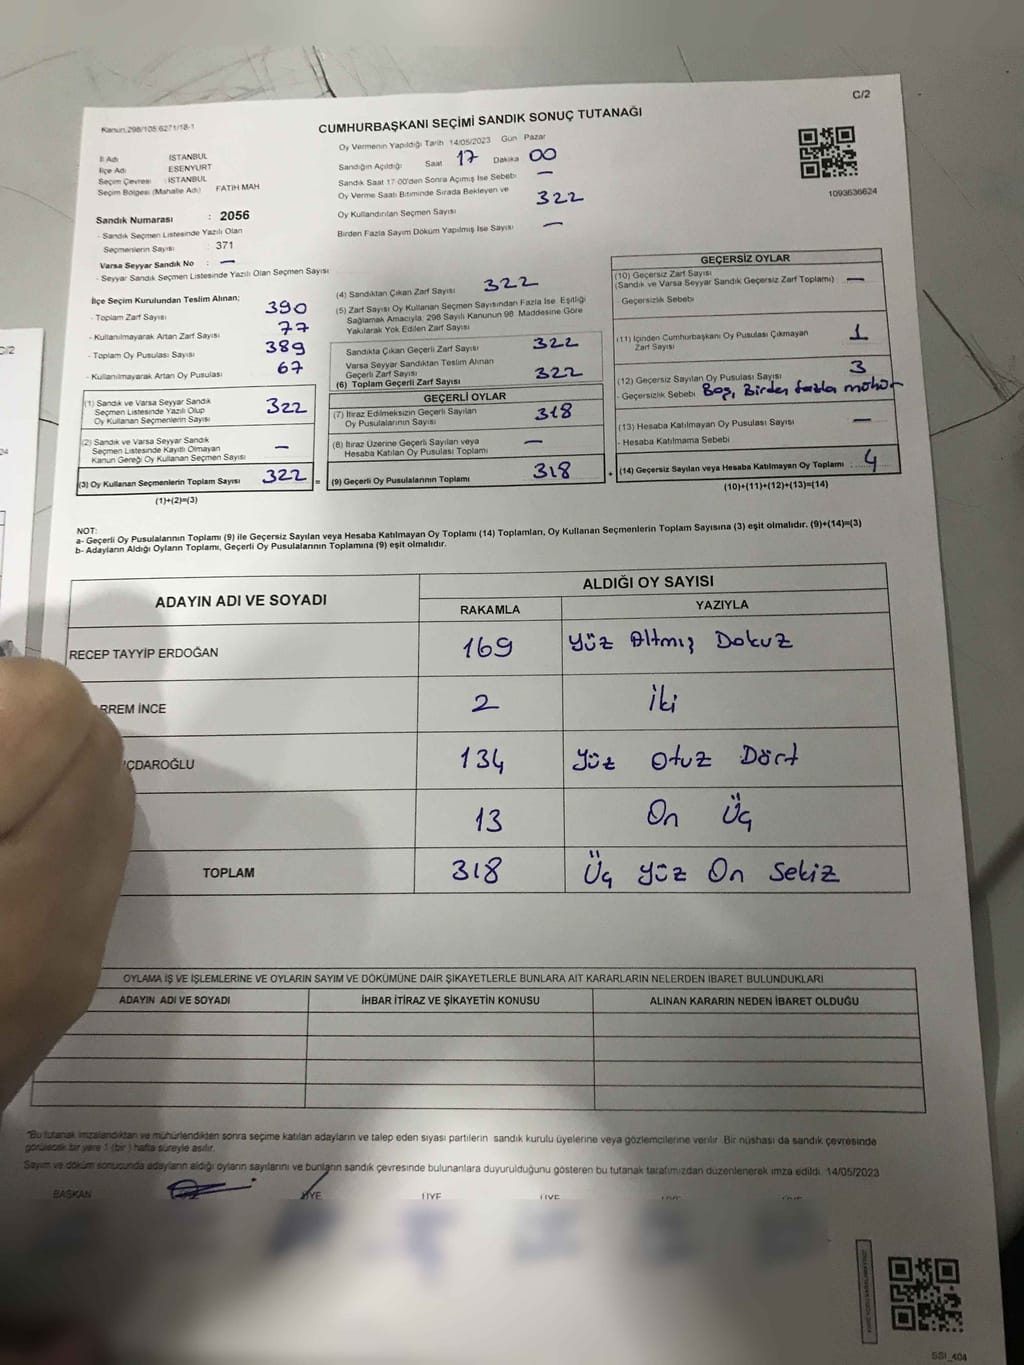 C/2
Kanun:298/105;6271/18-1
CUMHURBAŞKANI SEÇİMİ SANDIK SONUÇ TUTANAĞI
İl Adı İSTANBUL
İlçe Adı ESENYURT
Seçim Çevresi : İSTANBUL
Seçim Bölgesi (Mahalle Adı) FATİH MAH
Sandık Numarası : 2056
- Sandık Seçmen Listesinde Yazılı Olan
Seçmenlerin Sayısı : 371
Varsa Seyyar Sandık No : —
- Seyyar Sandık Seçmen Listesinde Yazılı Olan Seçmen Sayısı
Oy Vermenin Yapıldığı Tarih 14/05/2023 Gün Pazar
Sandığın Açıldığı Saat 17 Dakika 00
Sandık Saat 17:00'den Sonra Açılmış İse Sebebi —
Oy Verme Saati Bitiminde Sırada Bekleyen ve
Oy Kullandırılan Seçmen Sayısı 322
Birden Fazla Sayım Döküm Yapılmış İse Sayısı —
1093636624
İlçe Seçim Kurulundan Teslim Alınan:
- Toplam Zarf Sayısı 390
- Kullanılmayarak Artan Zarf Sayısı 77
- Toplam Oy Pusulası Sayısı 389
- Kullanılmayarak Artan Oy Pusulası 67
(1) Sandık ve Varsa Seyyar Sandık
Seçmen Listesinde Yazılı Olup
Oy Kullanan Seçmenlerin Sayısı 322
(2) Sandık ve Varsa Seyyar Sandık
Seçmen Listesinde Kayıtlı Olmayan
Kanun Gereği Oy Kullanan Seçmen Sayısı —
(3) Oy Kullanan Seçmenlerin Toplam Sayısı 322 =
(1)+(2)=(3)
(4) Sandıktan Çıkan Zarf Sayısı 322
(5) Zarf Sayısı Oy Kullanan Seçmen Sayısından Fazla İse, Eşitliği
Sağlamak Amacıyla, 298 Sayılı Kanunun 98. Maddesine Göre
Yakılarak Yok Edilen Zarf Sayısı
Sandıkta Çıkan Geçerli Zarf Sayısı 322
Varsa Seyyar Sandıktan Teslim Alınan
Geçerli Zarf Sayısı
(6) Toplam Geçerli Zarf Sayısı 322
GEÇERLİ OYLAR
(7) İtiraz Edilmeksizin Geçerli Sayılan
Oy Pusulalarının Sayısı 318
(8) İtiraz Üzerine Geçerli Sayılan veya
Hesaba Katılan Oy Pusulası Toplamı —
(9) Geçerli Oy Pusulalarının Toplamı 318 +
GEÇERSİZ OYLAR
(10) Geçersiz Zarf Sayısı
(Sandık ve Varsa Seyyar Sandık Geçersiz Zarf Toplamı) —
- Geçersizlik Sebebi
(11) İçinden Cumhurbaşkanı Oy Pusulası Çıkmayan
Zarf Sayısı 1
(12) Geçersiz Sayılan Oy Pusulası Sayısı 3
- Geçersizlik Sebebi Boş, Birden fazla mühür
(13) Hesaba Katılmayan Oy Pusulası Sayısı —
- Hesaba Katılmama Sebebi
(14) Geçersiz Sayılan veya Hesaba Katılmayan Oy Toplamı : 4
(10)+(11)+(12)+(13)=(14)
NOT:
a- Geçerli Oy Pusulalarının Toplamı (9) ile Geçersiz Sayılan veya Hesaba Katılmayan Oy Toplamı (14) Toplamları, Oy Kullanan Seçmenlerin Toplam Sayısına (3) eşit olmalıdır. (9)+(14)=(3)
b- Adayların Aldığı Oyların Toplamı, Geçerli Oy Pusulalarının Toplamına (9) eşit olmalıdır.
ADAYIN ADI VE SOYADI ALDIĞI OY SAYISI
RAKAMLA YAZIYLA
RECEP TAYYİP ERDOĞAN 169 Yüz Altmış Dokuz
RREM İNCE 2 İki
ÇDAROĞLU 134 Yüz Otuz Dört
13 On Üç
TOPLAM 318 Üç Yüz On Sekiz
OYLAMA İŞ VE İŞLEMLERİNE VE OYLARIN SAYIM VE DÖKÜMÜNE DAİR ŞİKAYETLERLE BUNLARA AİT KARARLARIN NELERDEN İBARET BULUNDUKLARI
ADAYIN ADI VE SOYADI İHBAR İTİRAZ VE ŞİKAYETİN KONUSU ALINAN KARARIN NEDEN İBARET OLDUĞU
"Bu tutanak imzalandıktan ve mühürlendikten sonra seçime katılan adayların ve talep eden siyasi partilerin sandık kurulu üyelerine veya gözlemcilerine verilir. Bir nüshası da sandık çevresinde
görülecek bir yere 1 (bir) hafta süreyle asılır.
Sayım ve döküm sonucunda adayların aldığı oyların sayılarını ve bunların sandık çevresinde bulunanlara duyurulduğunu gösteren bu tutanak tarafımızdan düzenlenerek imza edildi. 14/05/2023
BAŞKAN ÜYE ÜYE ÜYE ÜYE
SSI_404